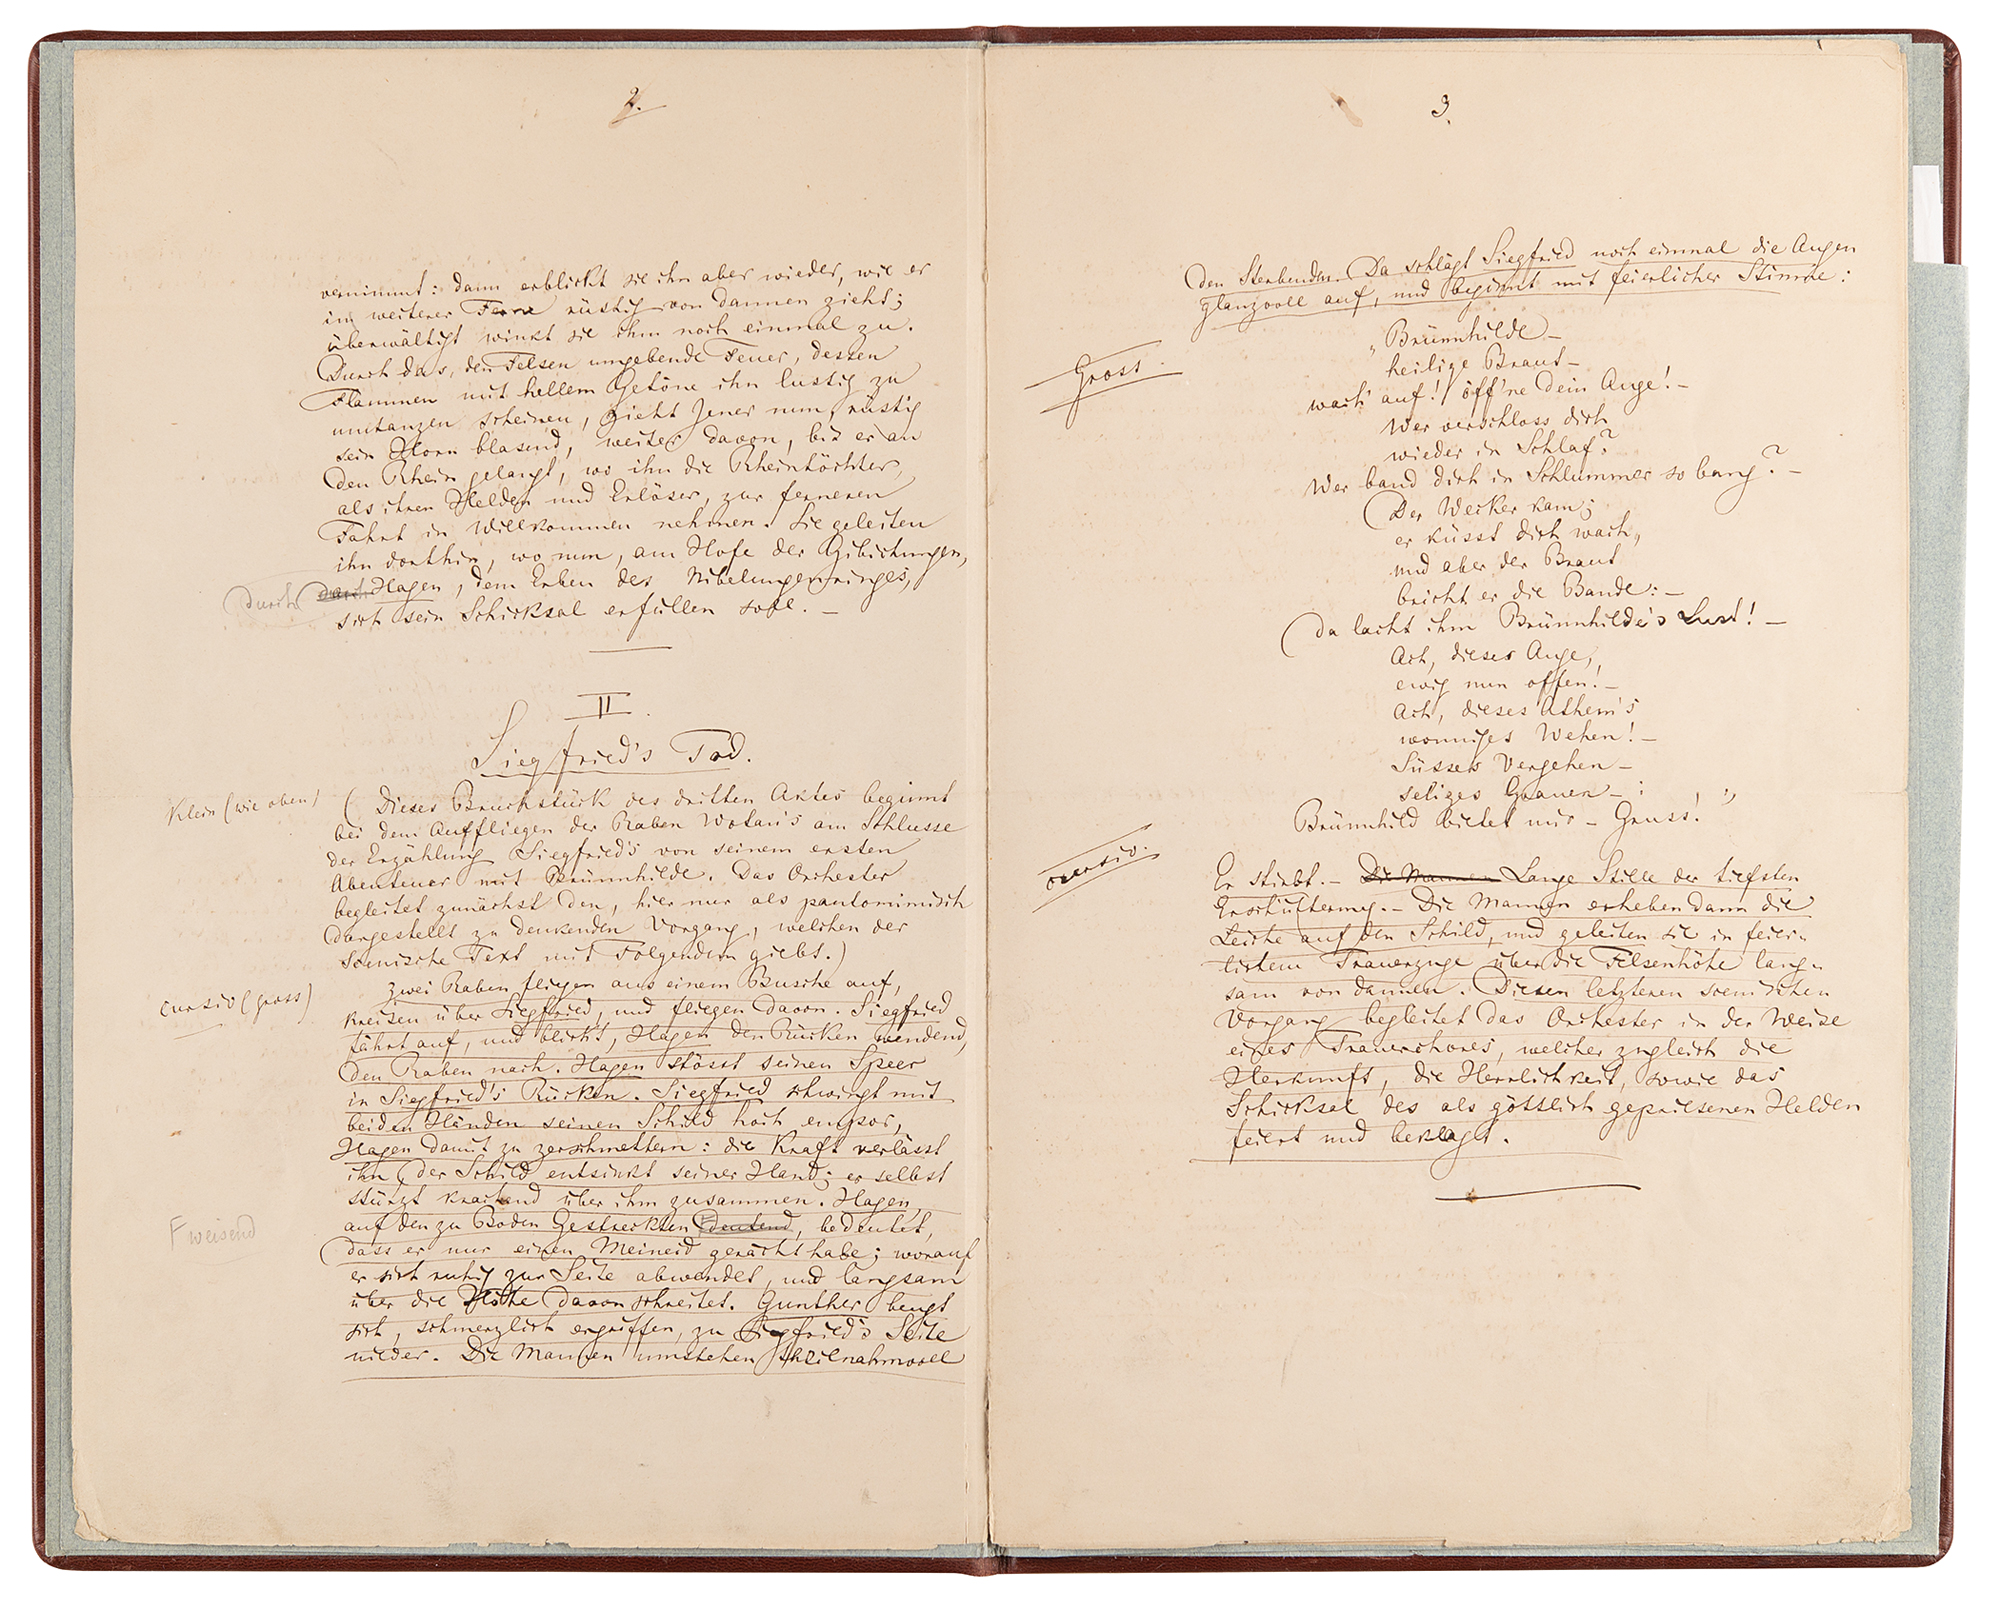 2.
vernimmt: dann erblickt sie ihn aber wieder, wie er
in weiterer Ferne rüstig von dannen zieht;
überwältigt winkt sie ihm noch einmal zu.
Durch das, den Felsen umgebende Feuer, dessen
Flammen mit hellem Getöne ihn lustig zu
umtanzen scheinen, zieht Jener nun, rüstig
sein Horn blasend, weiter davon, bis er an
den Rhein gelangt, wo ihn die Rheintöchter,
als ihren Helden und Erlöser, zur ferneren
Fahrt in Willkommen nehmen. Sie geleiten
ihn dorthin, wo nun, am Hofe der Gibichungen,
durch Hagen, dem Erben des Nibelungenringes,
sich sein Schicksal erfüllen soll. –
II.
Siegfried's Tod.
Klein (wie oben) (Dieses Bruchstück des dritten Aktes beginnt
bei dem Auffliegen der Raben Wotan's am Schlusse
der Erzählung Siegfried's von seinem ersten
Abenteuer mit Brünnhilde. Das Orchester
begleitet zunächst den, hier nur als pantomimisch
dargestellt zu denkenden Vorgang, welchen der
scenische Text mit Folgendem giebt.)
cursiv (gross) Zwei Raben fliegen aus einem Busche auf,
kreisen über Siegfried, und fliegen davon. Siegfried
fährt auf, und blickt, Hagen den Rücken wendend,
den Raben nach. Hagen stösst seinen Speer
in Siegfried's Rücken. Siegfried schwingt mit
beiden Händen seinen Schild hoch empor,
Hagen damit zu zerschmettern: die Kraft verlässt
ihn, der Schild entsinkt seiner Hand; er selbst
stürzt krachend über ihm zusammen. Hagen,
F weisend auf den zu Boden Gestreckten deutend, bedeutet,
dass er nur einen Meineid gerächt habe; worauf
er sich ruhig zur Seite abwendet, und langsam
über die Höhe davon schreitet. Gunther beugt
sich, schmerzlich ergriffen, zu Siegfried's Seite
nieder. Die Mannen umstehen theilnahmvoll
3.
den Sterbenden. Da schlägt Siegfried noch einmal die Augen
glanzvoll auf, und beginnt mit feierlicher Stimme:
Gross.
„Brünnhilde –
heilige Braut –
wach' auf! öff'ne dein Auge! –
Wer verschloss dich
wieder in Schlaf?
Wer band dich in Schlummer so bang? –
Der Wecker kam;
er küsst dich wach,
und aber der Braut
bricht er die Bande: –
da lacht ihm Brünnhilde's Lust! –
Ach, dieses Auge,
ewig nun offen! –
Ach, dieses Athem's
wonniges Wehen! –
Süsses Vergehen –
seliges Grauen – :
Brünnhild bietet mir – Gruss!"
cursiv.
Er stirbt. – Die Mannen Lange Stille der tiefsten
Erschütterung. – Die Mannen erheben dann die
Leiche auf den Schild, und geleiten sie in feier-
lichem Trauerzuge über die Felsenhöhe lang-
sam von dannen. Diesen letzteren scenischen
Vorgang begleitet das Orchester in der Weise
eines Trauerchores, welcher zugleich die
Herkunft, die Herrlichkeit, sowie das
Schicksal des als göttlich gepriesenen Helden
feiert und beklagt.